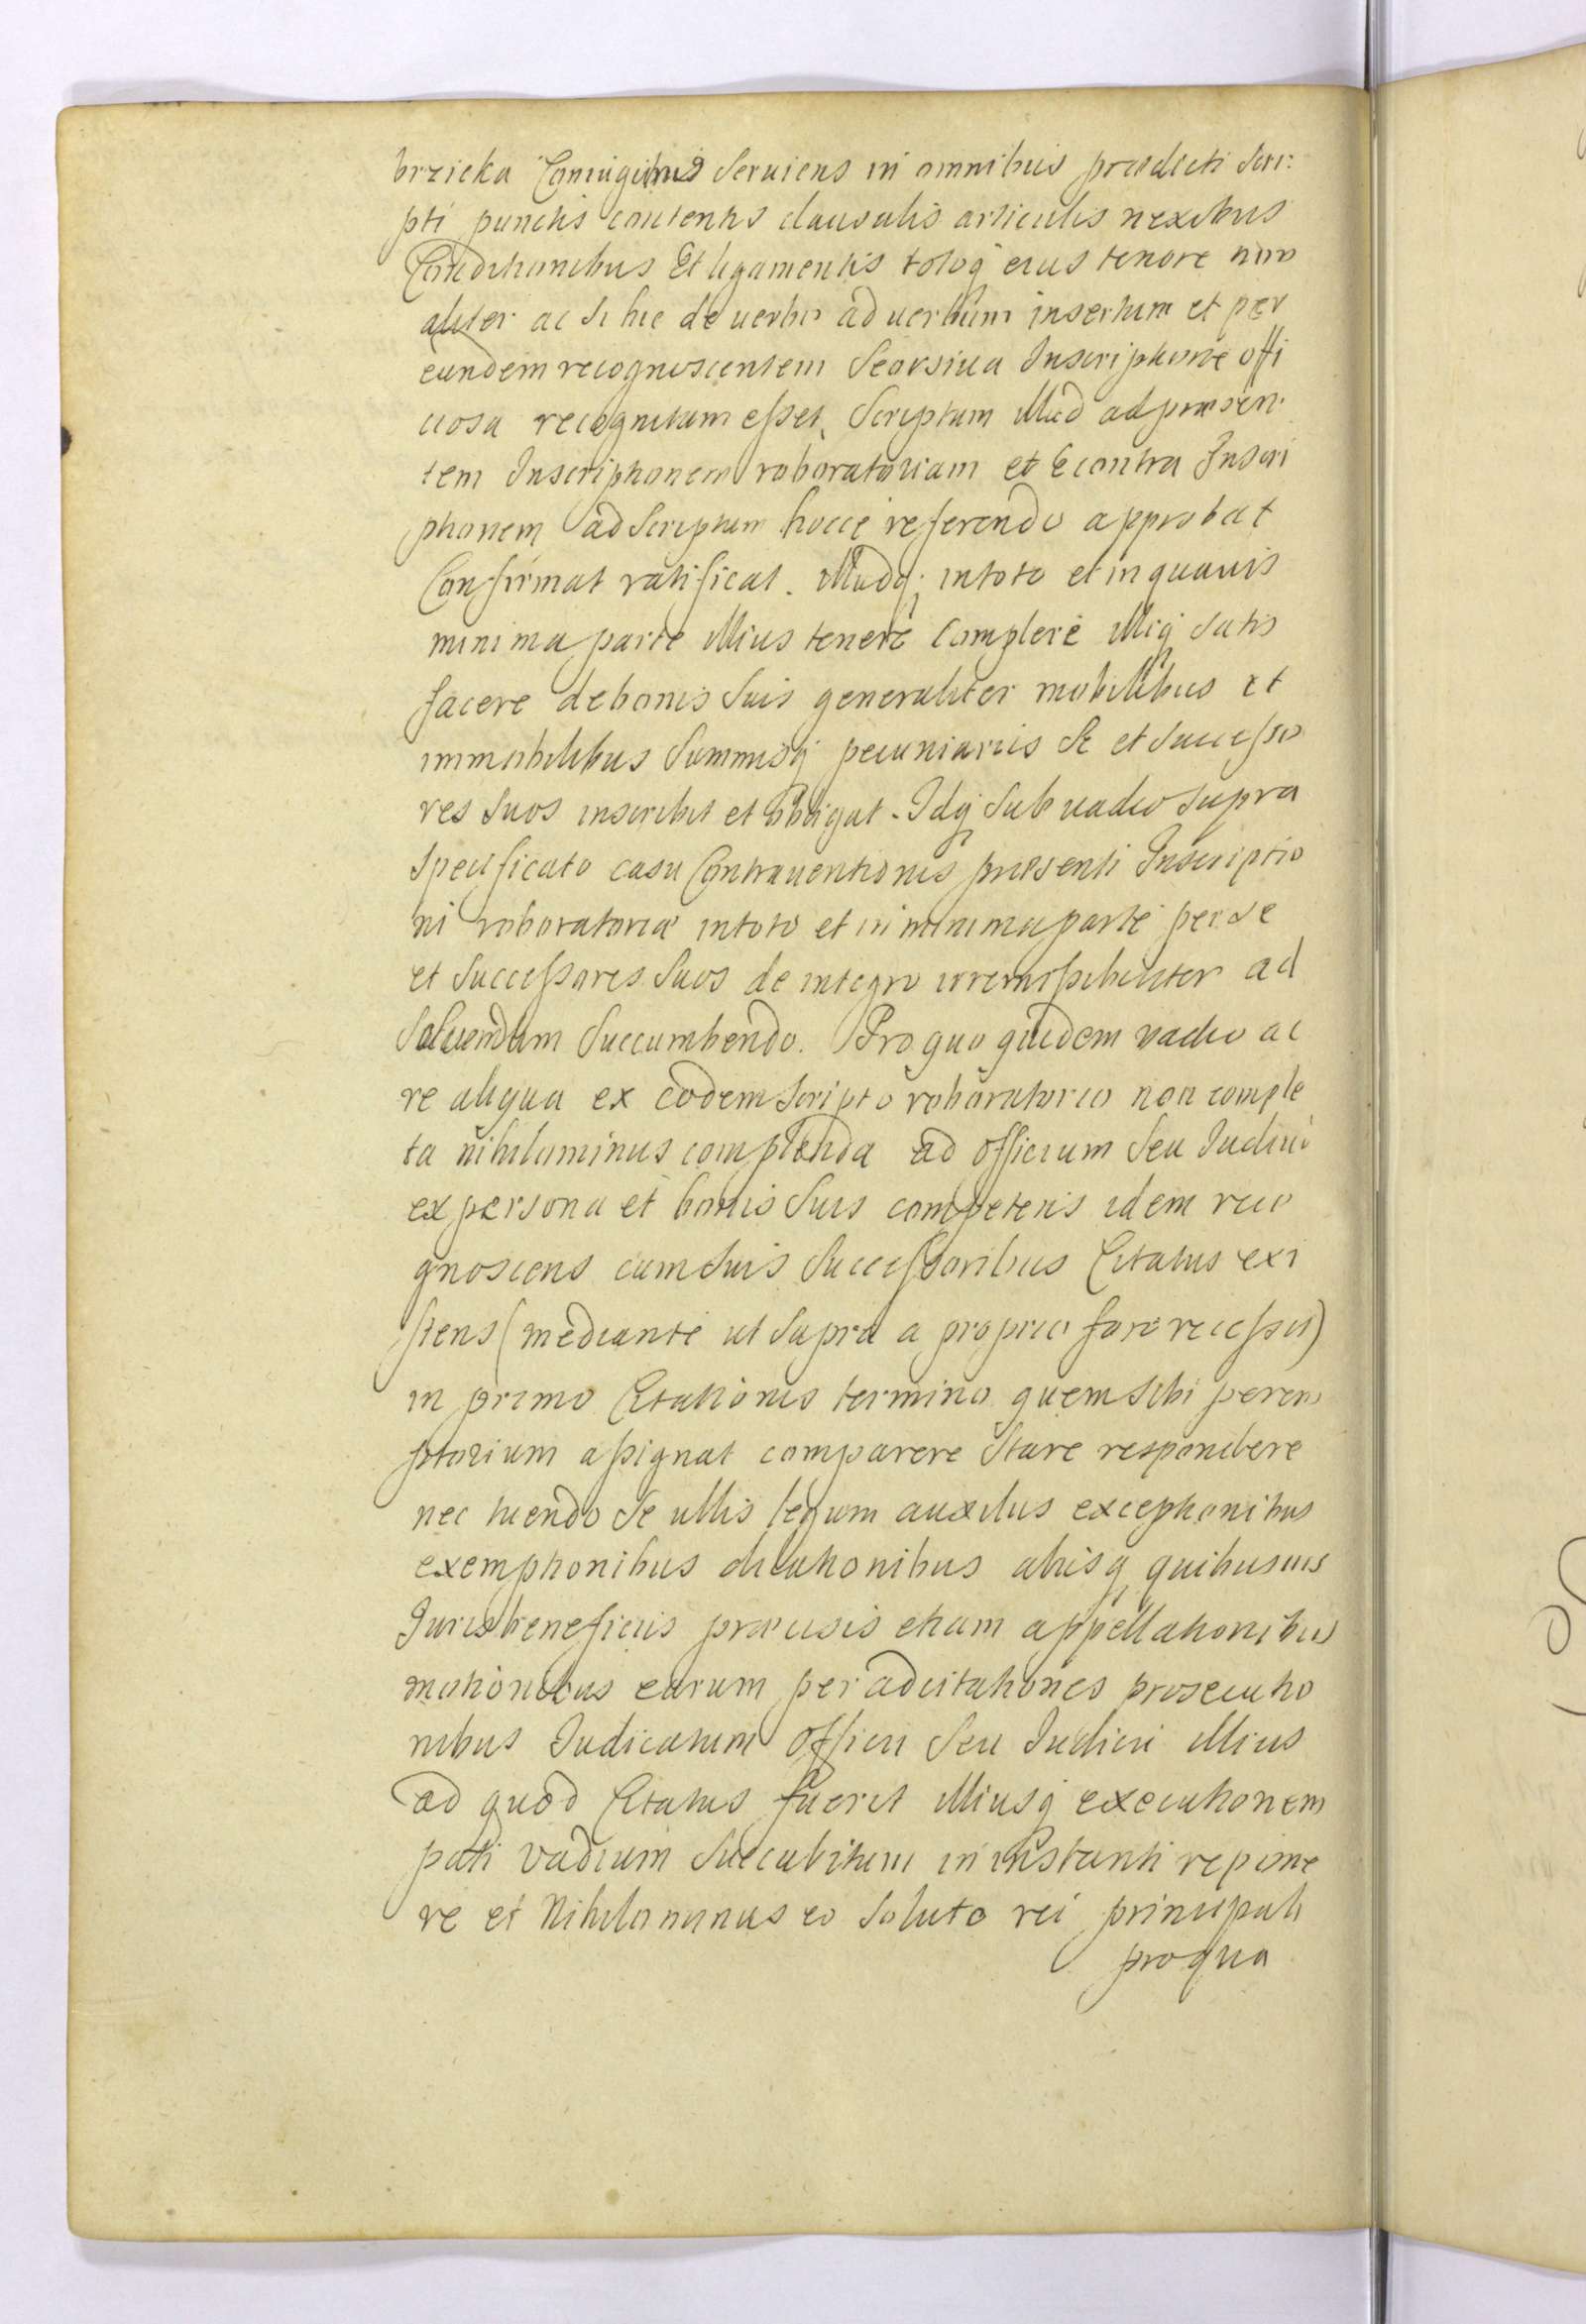 brzicka Coniugibus Seruiens in omnibus praedicti Scri:
pti punctis contentis clausulis articulis nexibus
Conditionibus Et ligamentis totoq eius tenore non
aliter ac si hic de uerbo ad uerbum insertum et per
eundem recognoscentem Seorsiua Inscriptione offi
ciosa recognitum esset, Scriptum illud ad praesen:
tem Inscriptionem roboratoriam et Econtra Inscri
ptionem ad Scriptum hocce referendo approbat
Confirmat ratificat. Illudq; in toto et in quauis
minima parte illius tenere Complere illiq satis
facere de bonis Suis generaliter mobilibus et
immobilibus Summisq pecuniariis Se et Successo
res Suos inscribit et obligat. Idq Sub uadio Supra
Specificato casu Contrauentionis praesenti Inscriptio
ni roboratoriae in toto et in minima parte per se
et Successores Suos de integro irremissibiliter ad
Soluendum Succumbendo. Pro quo quidem vadio ac
re aliqua ex eodem Scripto roboratorio non comple
ta nihilominus complenda ad officium Seu Iudiciū
ex persona et bonis Suis competens idem reco
gnoscens cum Suis Successoribus Citatus exi
stens (mediante ut Supra a proprio foro recessu)
in primo Citationis termino quem Sibi perem
ptorium assignat comparere Stare respondere
nec tuendo Se ullis legum auxiliis exceptionibus
exemptionibus dilationibus aliisq quibusuis
Iuris beneficiis praecisis etiam appellationibus
motionibus earum per adcitationes prosecutio
nibus Iudicatum Officii Seu Iudicii illius
ad quod Citatus fuerit illiusq executionem
pati vadium Succubitum in instanti repone
re et Nihilominus eo Soluto rei principali
pro qua